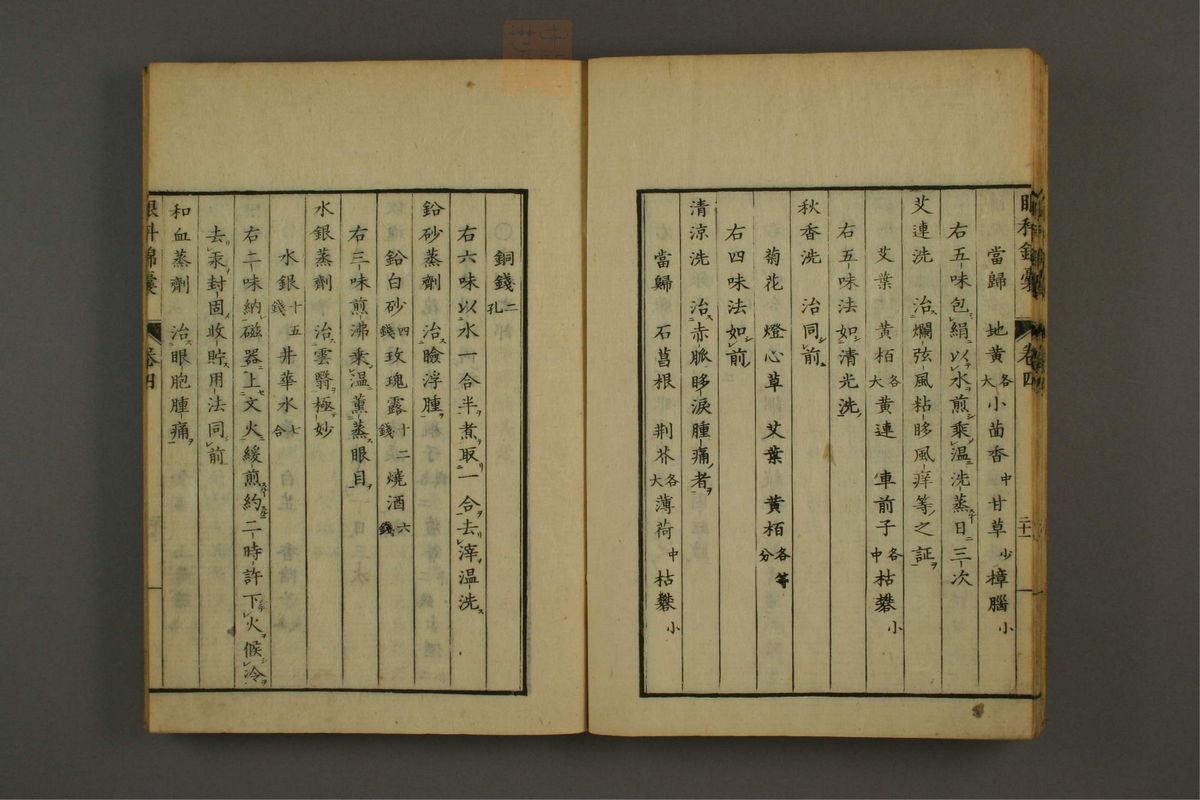 眼科錦囊 卷四 二十一
當歸 地黃各大小茴香中甘草少樟腦小
右五味包絹以水煎乘温洗蒸日三次
艾連洗 治爛弦風粘眵風痒等之証
艾葉 黃栢各大黃連 車前子各中枯礬小
右五味法如清光洗
秋香洗 治同前
菊花 燈心草 艾葉 黃栢各等分
右四味法如前
清涼洗 治赤脈眵淚腫痛者
當歸 石菖根 荆芥各大薄荷中枯礬小
銅錢二孔
右六味以水一合半煮取一合去滓温洗
鉛砂蒸劑 治瞼浮腫
鉛白砂四錢玫瑰露十二錢燒酒六錢
右三味煎沸乘温薰蒸眼目
水銀蒸劑 治雲翳極妙
水銀十五錢井華水七合
右二味納磁器上文火緩煎約二時許下火候冷
去汞封固收貯用法同前
和血蒸劑 治眼胞腫痛
眼科錦囊 卷四